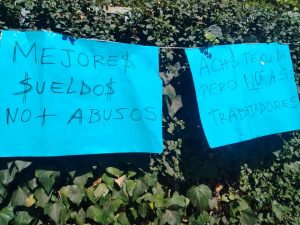 MEJORE$
$UELDO$
NO+ ABUSOS
PERO NO A $
TRABAJADORES